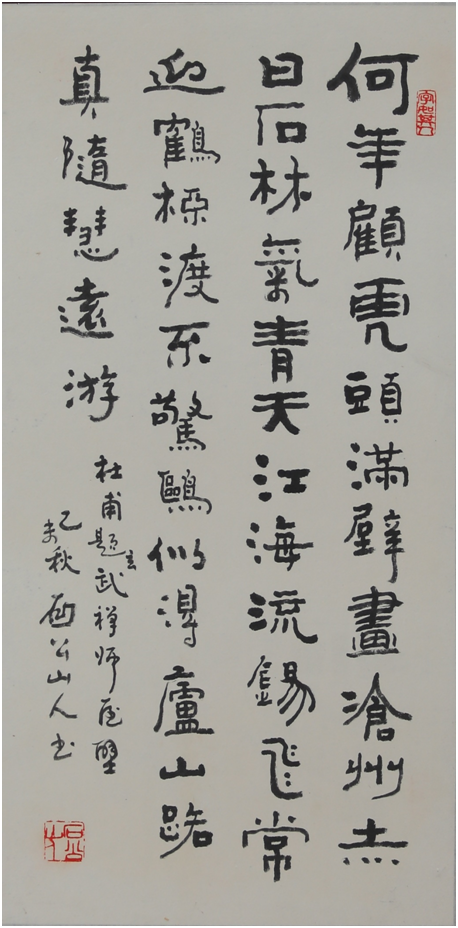 何年顧虎頭滿壁畫滄州赤
日石林氣青天江海流錫飛常
迎鶴桮渡不驚鷗似得廬山路
真隨慧遠游
杜甫題玄武禅师屋壁
乙未秋公山人书